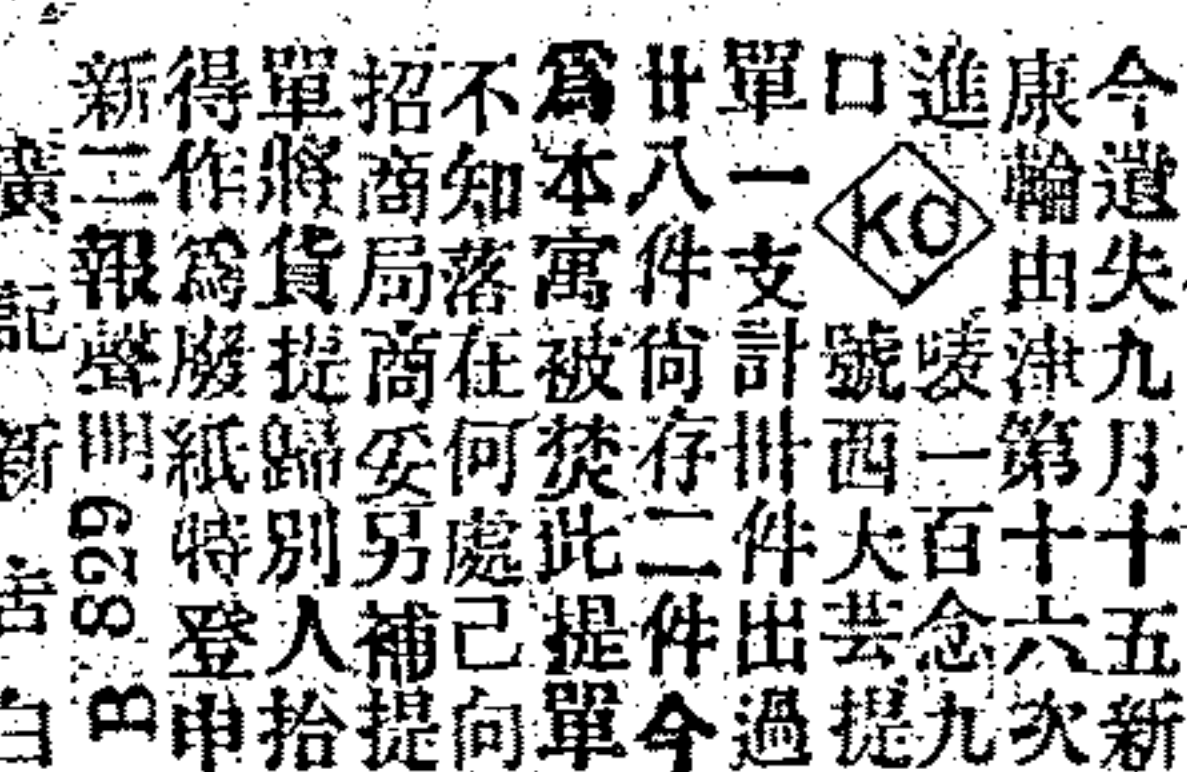 今遺失九月十五新
康輪由津第十六次
進嘜一百念九
口KC號西大芸提
單一支計卅件出過
廿八件尙存二件今
爲本寓被焚此提單
不知落在何處己向
招商局商妥另補提
單將貨提歸別人拾
得作爲廢紙特登申
新三報聲明 B 829
廣記新吿白